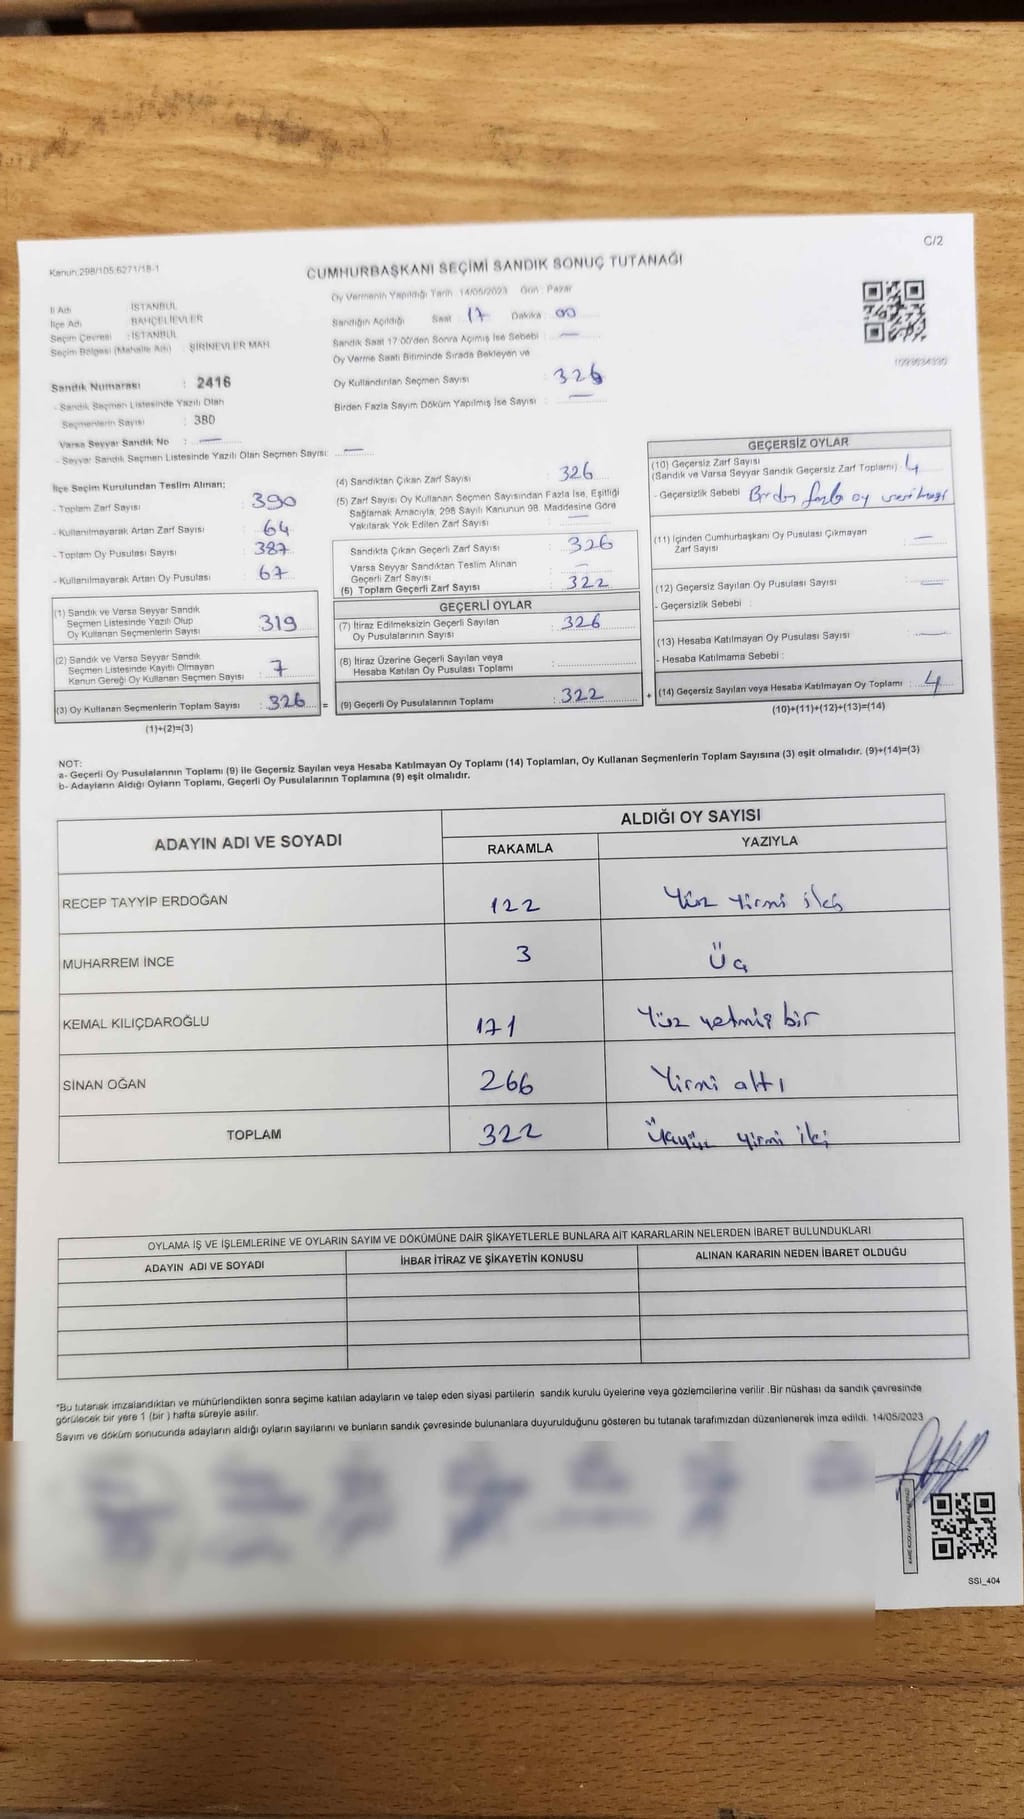 C/2
Kanun:298/105;6271/18-1
CUMHURBAŞKANI SEÇİMİ SANDIK SONUÇ TUTANAĞI
İl Adı : İSTANBUL
İlçe Adı : BAHÇELİEVLER
Seçim Çevresi : İSTANBUL
Seçim Bölgesi (Mahalle Adı) : ŞİRİNEVLER MAH
Sandık Numarası : 2416
- Sandık Seçmen Listesinde Yazılı Olan
Seçmenlerin Sayısı : 380
Varsa Seyyar Sandık No : —
- Seyyar Sandık Seçmen Listesinde Yazılı Olan Seçmen Sayısı: —
Oy Vermenin Yapıldığı Tarih :14/05/2023 Gün : Pazar
Sandığın Açıldığı Saat : 17 Dakika : 00
Sandık Saat 17:00'den Sonra Açımış İse Sebebi : —
Oy Verme Saati Bitiminde Sırada Bekleyen ve
Oy Kullandırılan Seçmen Sayısı : 326
Birden Fazla Sayım Döküm Yapılmış İse Sayısı : —
İlçe Seçim Kurulundan Teslim Alınan:
- Toplam Zarf Sayısı : 390
- Kullanılmayarak Artan Zarf Sayısı : 64
- Toplam Oy Pusulası Sayısı : 387
- Kullanılmayarak Artan Oy Pusulası : 67
(1) Sandık ve Varsa Seyyar Sandık
Seçmen Listesinde Yazılı Olup
Oy Kullanan Seçmenlerin Sayısı : 319
(2) Sandık ve Varsa Seyyar Sandık
Seçmen Listesinde Kayıtlı Olmayan
Kanun Gereği Oy Kullanan Seçmen Sayısı : 7
(3) Oy Kullanan Seçmenlerin Toplam Sayısı : 326 =
(1)+(2)=(3)
(4) Sandıktan Çıkan Zarf Sayısı : 326
(5) Zarf Sayısı Oy Kullanan Seçmen Sayısından Fazla İse, Eşitliği
Sağlamak Amacıyla, 298 Sayılı Kanunun 98. Maddesine Göre
Yakılarak Yok Edilen Zarf Sayısı : —
Sandıkta Çıkan Geçerli Zarf Sayısı : 326
Varsa Seyyar Sandıktan Teslim Alınan
Geçerli Zarf Sayısı : —
(6) Toplam Geçerli Zarf Sayısı : 322
GEÇERLİ OYLAR
(7) İtiraz Edilmeksizin Geçerli Sayılan
Oy Pusulalarının Sayısı : 326
(8) İtiraz Üzerine Geçerli Sayılan veya
Hesaba Katılan Oy Pusulası Toplamı :
(9) Geçerli Oy Pusulalarının Toplamı : 322 +
GEÇERSİZ OYLAR
(10) Geçersiz Zarf Sayısı
(Sandık ve Varsa Seyyar Sandık Geçersiz Zarf Toplamı) : 4
- Geçersizlik Sebebi : Birden fazla oy verilmesi
(11) İçinden Cumhurbaşkanı Oy Pusulası Çıkmayan
Zarf Sayısı : —
(12) Geçersiz Sayılan Oy Pusulası Sayısı : —
- Geçersizlik Sebebi :
(13) Hesaba Katılmayan Oy Pusulası Sayısı : —
- Hesaba Katılmama Sebebi :
(14) Geçersiz Sayılan veya Hesaba Katılmayan Oy Toplamı : 4
(10)+(11)+(12)+(13)=(14)
NOT:
a- Geçerli Oy Pusulalarının Toplamı (9) ile Geçersiz Sayılan veya Hesaba Katılmayan Oy Toplamı (14) Toplamları, Oy Kullanan Seçmenlerin Toplam Sayısına (3) eşit olmalıdır. (9)+(14)=(3)
b- Adayların Aldığı Oyların Toplamı, Geçerli Oy Pusulalarının Toplamına (9) eşit olmalıdır.
ADAYIN ADI VE SOYADI
ALDIĞI OY SAYISI
RAKAMLA YAZIYLA
RECEP TAYYİP ERDOĞAN 122 Yüz yirmi iki
MUHARREM İNCE 3 Üç
KEMAL KILIÇDAROĞLU 171 Yüz yetmiş bir
SİNAN OĞAN 266 Yirmi altı
TOPLAM 322 Üçyüz yirmi iki
OYLAMA İŞ VE İŞLEMLERİNE VE OYLARIN SAYIM VE DÖKÜMÜNE DAİR ŞİKAYETLERLE BUNLARA AİT KARARLARIN NELERDEN İBARET BULUNDUKLARI
ADAYIN ADI VE SOYADI İHBAR İTİRAZ VE ŞİKAYETİN KONUSU ALINAN KARARIN NEDEN İBARET OLDUĞU
*Bu tutanak imzalandıktan ve mühürlendikten sonra seçime katılan adayların ve talep eden siyasi partilerin sandık kurulu üyelerine veya gözlemcilerine verilir .Bir nüshası da sandık çevresinde
görülecek bir yere 1 (bir ) hafta süreyle asılır.
Sayım ve döküm sonucunda adayların aldığı oyların sayılarını ve bunların sandık çevresinde bulunanlara duyurulduğunu gösteren bu tutanak tarafımızdan düzenlenerek imza edildi. 14/05/2023
SSI_404